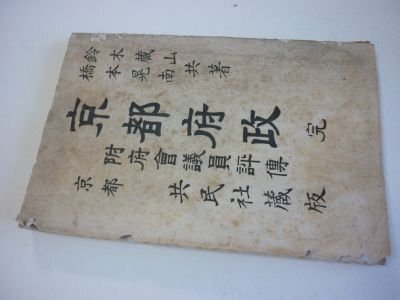 鈴木蔵山
橋本晃南
共著
京都府政 完
附府會議員評傳
京都 共民社蔵版